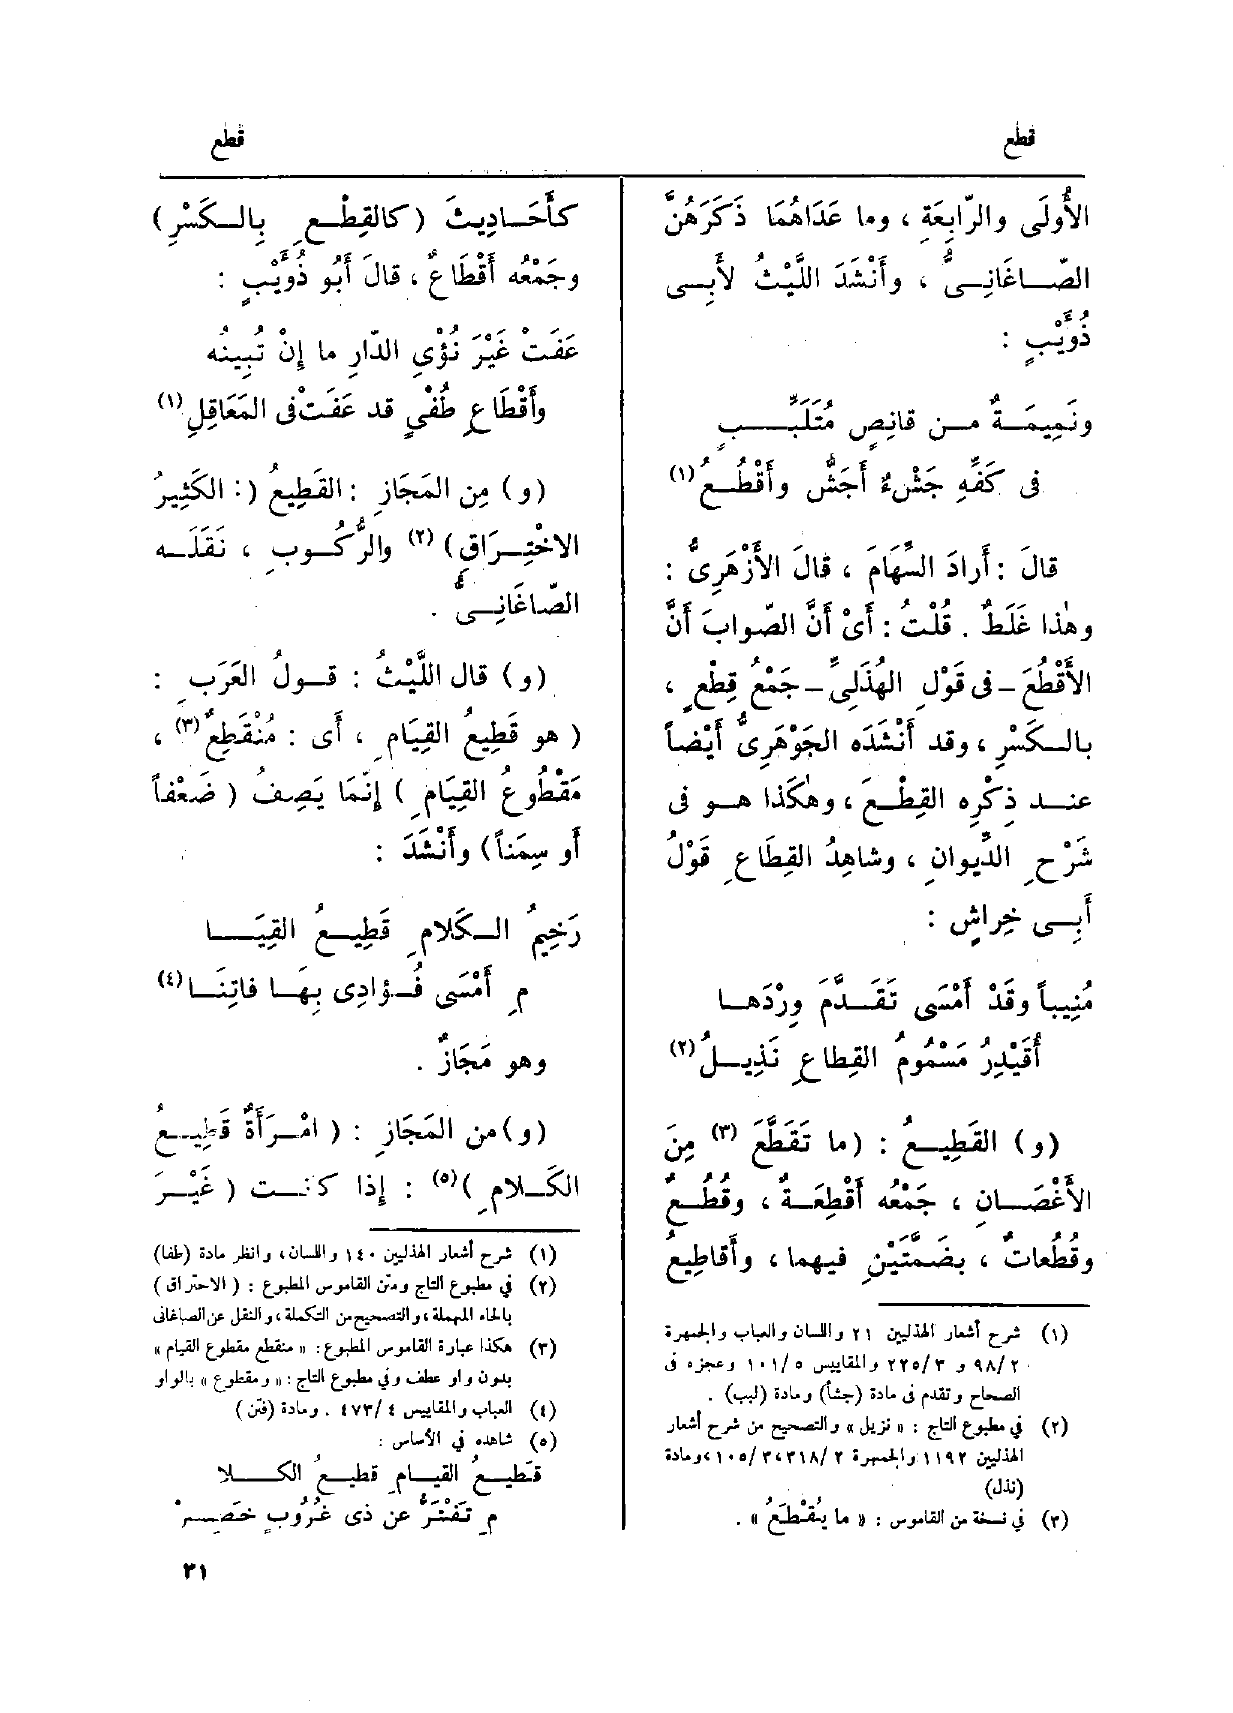 قطع
قطع
الأُولَى والرّابِعَةِ ، وما عَدَاهُمَا ذَكَرَهُنَّ
الصّاغَانِىُّ ، وأَنْشَدَ اللَّيْثُ لأَبِى
ذُؤَيْبٍ :
ونَمِيمَةٌ من قانِصٍ مُتَلَبِّبٍ
فى كَفِّهِ جَشْءٌ أَجَشُّ وأَقْطُعُ (١)
قالَ : أَرادَ السِّهَامَ ، قالَ الأَزْهَرِىُّ :
وهٰذا غَلَطٌ . قُلْتُ : أَىْ أَنَّ الصّوابَ أَنَّ
الأَقْطُعَ – فى قَوْلِ الهُذَلِىِّ – جَمْعُ قِطْعٍ ،
بالكَسْرِ ، وقد أَنْشَدَه الجَوْهَرِىُّ أَيْضاً
عند ذِكْرِه القِطْعَ ، وهٰكَذا هو فى
شَرْحِ الدِّيوانِ ، وشاهِدُ القِطَاعِ قَوْلُ
أَبِى خِراشٍ :
مُنِيباً وقَدْ أَمْسَى تَقَدَّمَ وِرْدَها
أُقَيْدِرُ مَسْمُومُ القِطاعِ نَذِيلُ (٢)
(و) القَطِيعُ : (ما تَقَطَّعَ (٣) مِنَ
الأَغْصَانِ ، جَمْعُه أَقْطِعَةٌ ، وقُطُعٌ
وقُطُعاتٌ ، بضَمَّتَيْنِ فيهِما ، وأَقاطِيعُ
(١) شرح أشعار الهذليين ٢١ واللسان والعباب والجمهرة
٩٨/٢ و ٢٢٥/٣ والمقاييس ١٠١/٥ وعجزه فى
الصحاح وتقدم فى مادة (جشأ) ومادة (لبب) .
(٢) في مطبوع التاج : « نزيل » والتصحيح من شرح أشعار
الهذليين ١١٩٢ والجمهرة ٣١٨/٢ ، ١٠٥/٣ ، ومادة
(نذل)
(٣) في نسخة من القاموس : « ما يُقْطَعُ » .
كأَحَادِيثَ (كالقِطْعِ بِالكَسْرِ)
وجَمْعُه أَقْطَاعٌ ، قالَ أَبُو ذُؤَيْبٍ :
عَفَتْ غَيْرَ نُؤْىِ الدّارِ ما إِنْ تُبِينُه
وأَقْطَاعِ طُفْىٍ قد عَفَتْ فى المَعَاقِلِ (١)
(و) مِن المَجَازِ : القَطِيعُ (: الكَثِيرُ
الاخْتِرَاقِ) (٢) والرُّكُوبِ ، نَقَلَه
الصّاغَانِىُّ .
(و) قال اللَّيْثُ : قولُ العَرَبِ :
( هو قَطِيعُ القِيَامِ ، أَى : مُنْقَطِعٌ (٣) ،
مَقْطُوعُ القِيَامِ ) إِنَّمَا يَصِفُ ( ضَعْفاً
أَو سِمَناً) وأَنْشَدَ :
رَخِيمُ الكَلامِ قَطِيعُ القِيَا
مِ أَمْسَى فُؤادِى بِهَا فاتِنَا (٤)
وهو مَجَازٌ .
(و) من المَجَازِ : ( امْرَأَةٌ قَطِيعُ
الكَلامِ ) (٥) : إِذا كانت ( غَيْرَ
(١) شرح أشعار الهذليين ١٤٠ واللسان ، وانظر مادة (طفا)
(٢) في مطبوع التاج ومتن القاموس المطبوع : ( الاحتراق )
بالحاء المهملة ، والتصحيح من التكملة ، والنقل عن الصاغانى
(٣) هكذا عبارة القاموس المطبوع : « منقطع مقطوع القيام »
بدون واو عطف وفي مطبوع التاج : « ومقطوع » بالواو
(٤) العباب والمقاييس ٤٧٣/٤ . ومادة (فتن )
(٥) شاهده في الأساس :
قَطِيعُ القِيامِ قطيعُ الكلا
مِ تَفْتَرُّ عن ذى غُرُوبٍ خَصِرْ
٣١